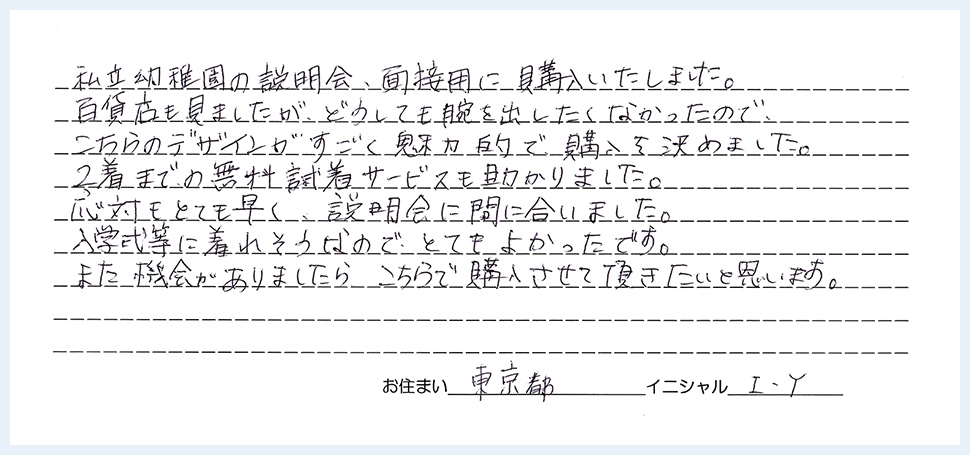 私立幼稚園の説明会、面接用に購入いたしました。
百貨店も見ましたが、どうしても腕を出したくなかったので、
こちらのデザインがすごく魅力的で購入を決めました。
2着までの無料試着サービスも助かりました。
応対もとても早く、説明会に間に合いました。
入学式等に着れそうなので、とてもよかったです。
また機会がありましたら こちらで購入させて頂きたいと思います。
お住まい 東京都 イニシャル I・Y